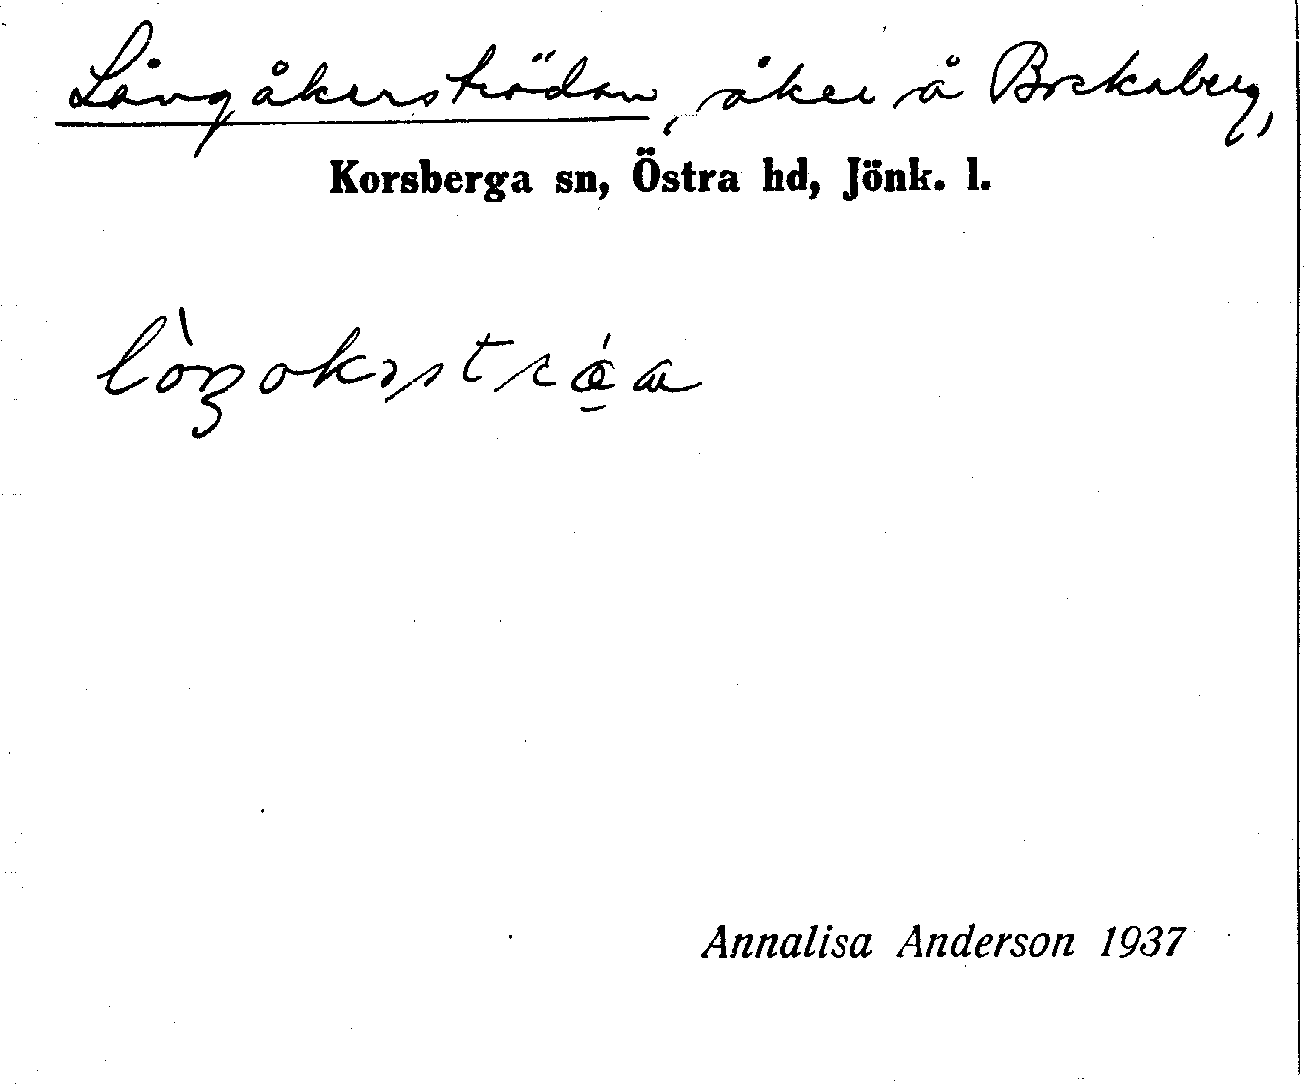 Långåkersträdan, åker å Bockaberg,
Korsberga sn, Östra hd, Jönk. l.
Annalisa Anderson 1937